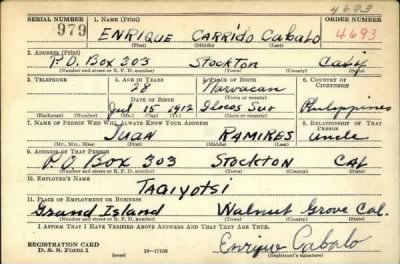 4693
SERIAL NUMBER 1. NAME (Print) ORDER NUMBER
979 ENRIQUE CARRIDO Cabalo 4693
(First) (Middle) (Last)
2. ADDRESS (Print)
P.O. Box 303 Stockton Calif
(Number and street or R. F. D. number) (Town) (County) (State)
3. TELEPHONE 4. AGE IN YEARS 5. PLACE OF BIRTH 6. COUNTRY OF CITIZENSHIP
28 Narvacan
DATE OF BIRTH (Town or county)
Jul 15 1912 Ilocos Sur Philippines
(Exchange) (Number) (Mo.) (Day) (Yr.) (State or country)
7. NAME OF PERSON WHO WILL ALWAYS KNOW YOUR ADDRESS 8. RELATIONSHIP OF THAT PERSON
JUAN RAMIRES Uncle
(Mr., Mrs., Miss) (First) (Middle) (Last)
9. ADDRESS OF THAT PERSON
P.O. Box 303 STOCKTON CAL
(Number and street or R. F. D. number) (Town) (County) (State)
10. EMPLOYER'S NAME
TAGIYOTSI
11. PLACE OF EMPLOYMENT OR BUSINESS
Grand Island Walnut Grove Cal.
(Number and street or R. F. D. number) (Town) (County) (State)
I AFFIRM THAT I HAVE VERIFIED ABOVE ANSWERS AND THAT THEY ARE TRUE.
REGISTRATION CARD
D. S. S. Form 1 16-17105 Enrique Cabalo
(Registrant's signature)